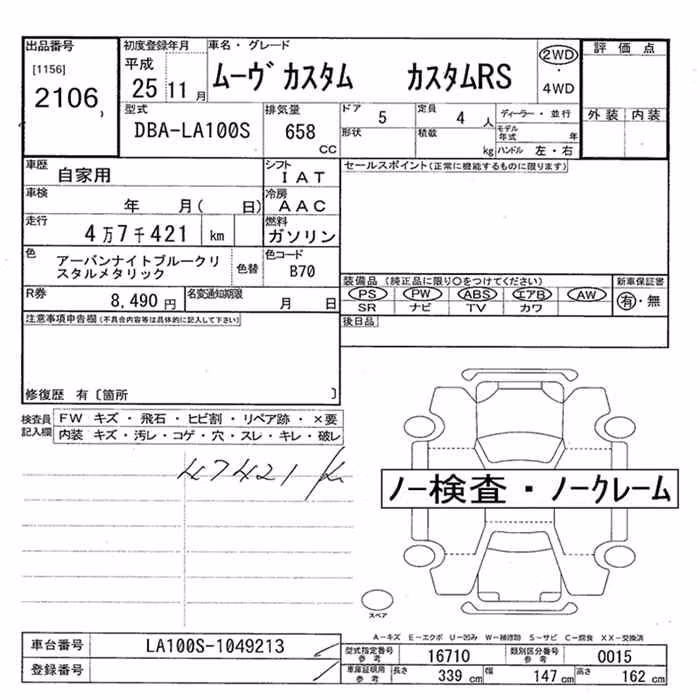 出品番号 初度登録年月 車名・グレード 2WD 評価点
[1156] 平成 ・
2106 25 11月 ムーヴ カスタム カスタムRS 4WD
型式 排気量 ドア 5 定員 4人 ディーラー・並行 外装 内装
DBA-LA100S 658 CC 形状 積載 kg モデル年式 年
ハンドル 左・右
車歴 自家用 シフト IAT セールスポイント(正常に機能するものに限ります)
車検 年 月( 日) 冷房 AAC
走行 4万7千421 km 燃料 ガソリン
色 アーバンナイトブルークリ 色替 色コード
スタルメタリック B70
装備品 (純正品に限り○をつけてください) 新車保証書
R券 8,490円 名変通知期限 月 日 PS PW ABS エアB AW 有・無
SR ナビ TV カワ
注意事項申告欄(不具合内容等は具体的に記入して下さい) 後日品
修復歴 有〔箇所 〕
検査員 FW キズ・飛石・ヒビ割・リペア跡・×要
記入欄 内装 キズ・汚レ・コゲ・穴・スレ・キレ・破レ
47421 K
ノー検査・ノークレーム
スペア
A-キズ E-エクボ U-凹み W-補修跡 S-サビ C-腐食 XX-交換済
車台番号 LA100S-1049213 型式指定番号 参考 16710 類別区分番号 参考 0015
登録番号 車庫証明用 参考 長さ 339 cm 幅 147 cm 高さ 162 cm